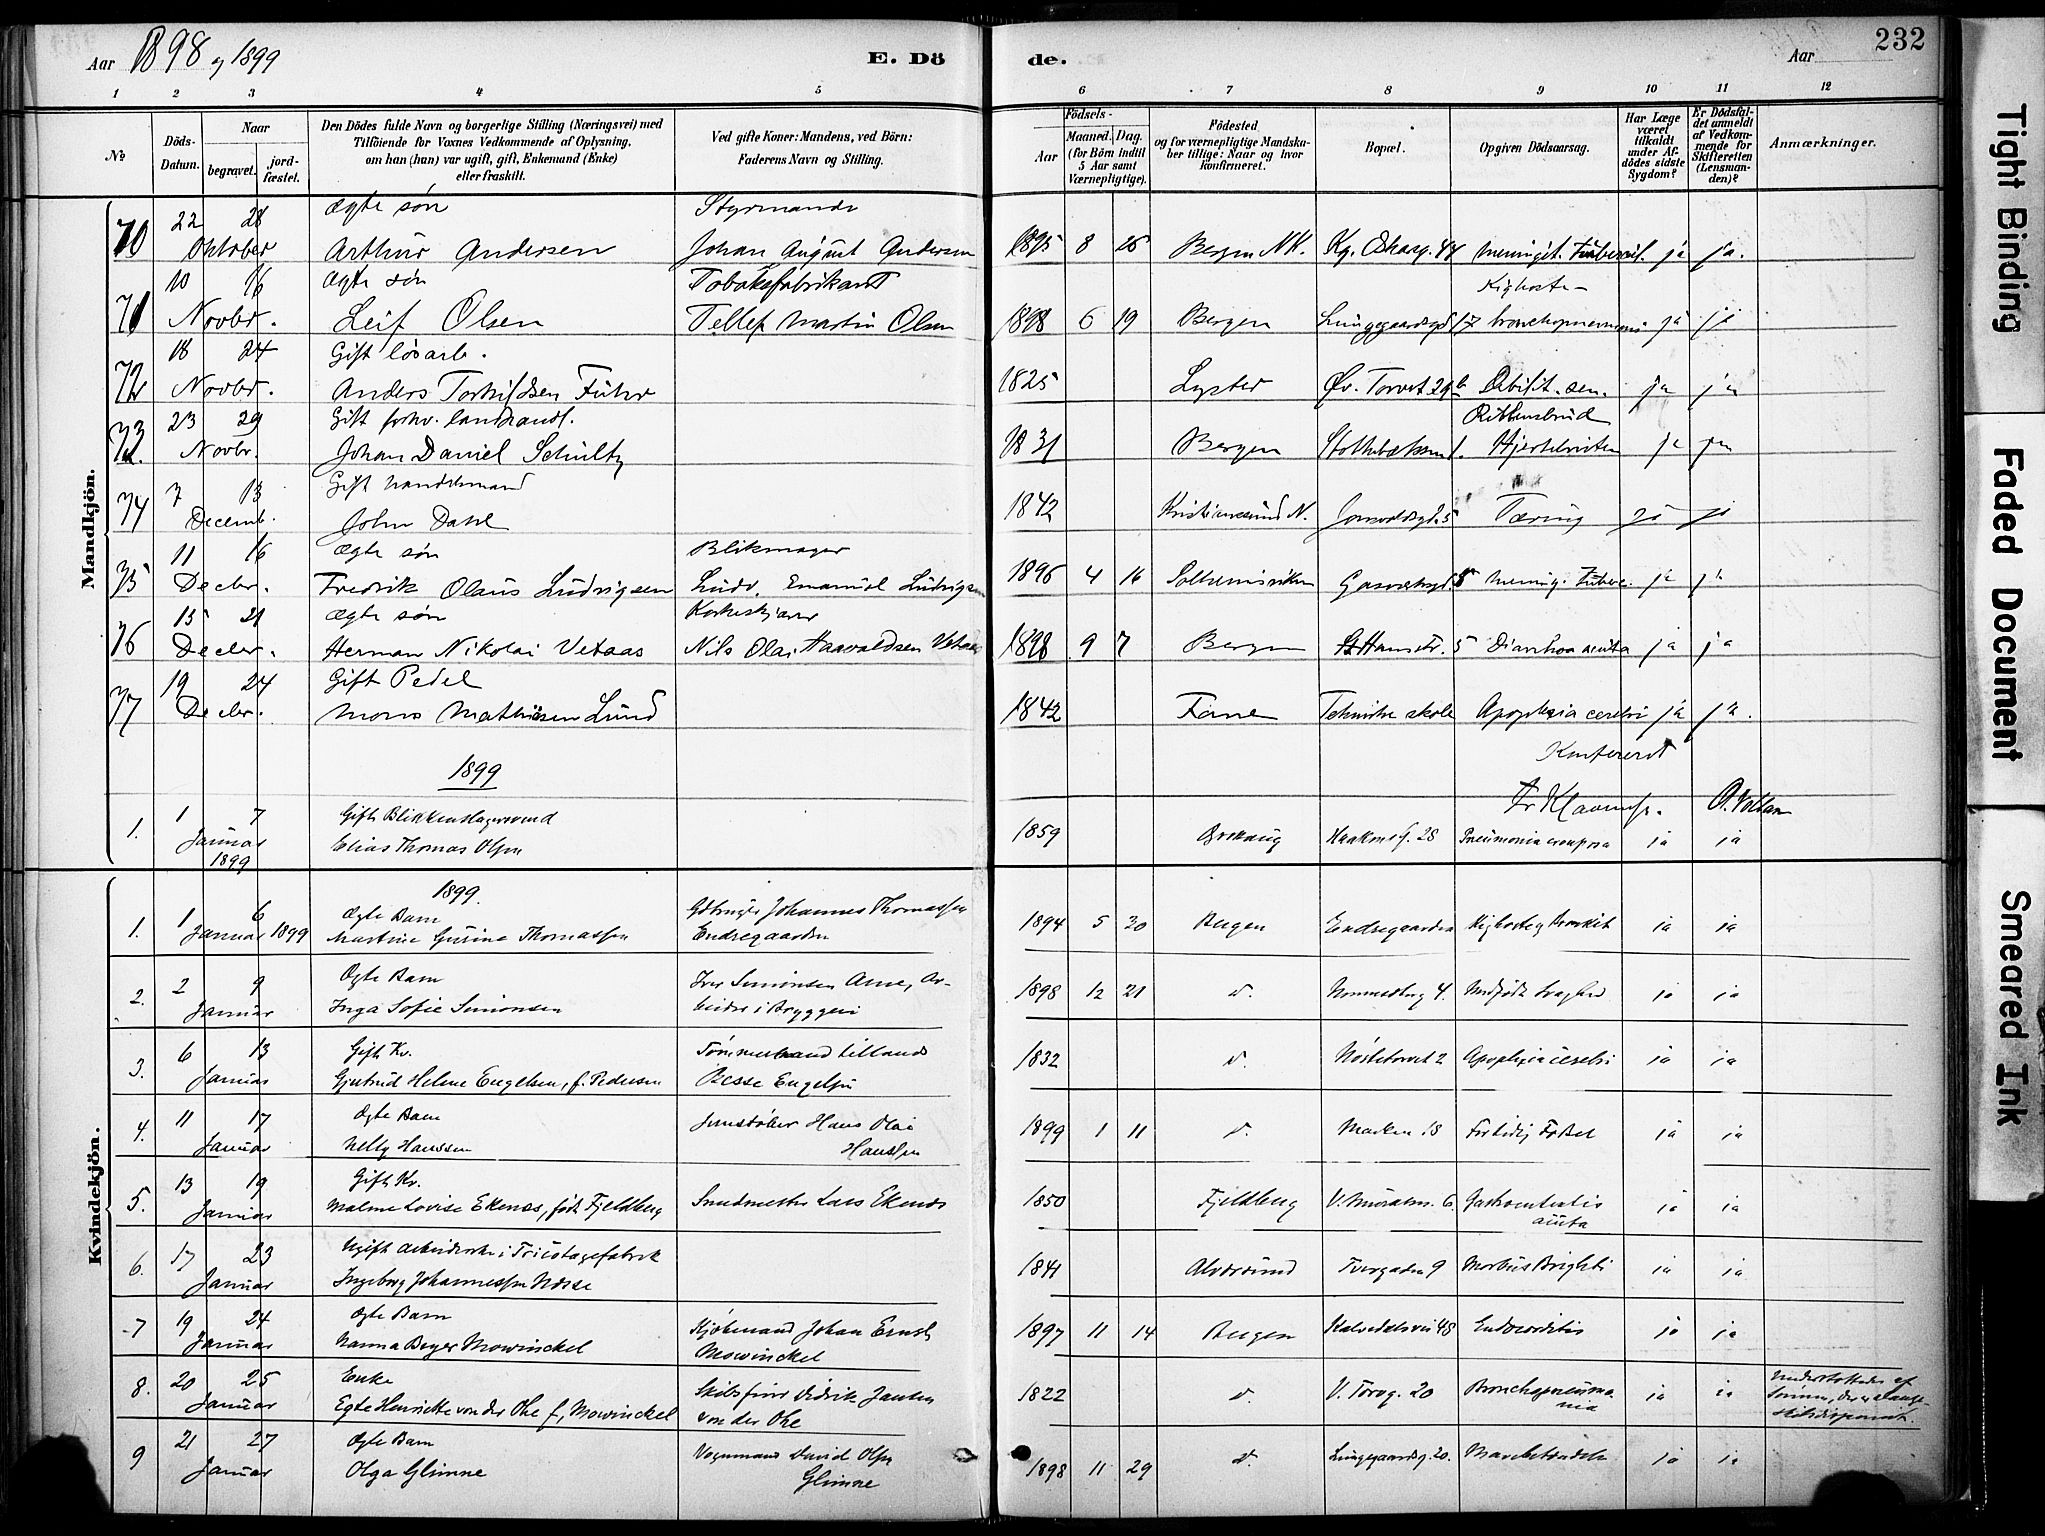 Aar 1898 og 1899 E. Dö de. Aar 232
1 2 3 4 5 6 7 8 9 10 11 12
No Döds-Datum. Naar begravet. jord-fæstet.
Den Dödes fulde Navn og borgerlige Stilling (Næringsvei) med
Tilföiende for Voxnes Vedkommende af Oplysning,
om han (hun) var ugift, gift, Enkemand (Enke)
eller fraskilt.
Ved gifte Koner: Mandens, ved Börn:
Faderens Navn og Stilling.
Födsels-
Aar Maaned. Dag.
(for Börn indtil
5 Aar samt
Værnepligtige).
Födested
og for værnepligtige Mandska-
ber tillige: Naar og hvor
konfirmeret.
Bopæl.
Opgiven Dödsaarsag.
Har Læge
været
tilkaldt
under Af-
dödes sidste
Sygdom?
Er Dödsfal-
det anmeldt
af Vedkom-
mende for
Skifteretten
(Lensman-
den)?
Anmærkninger.
Mandkjön.
22 28 ægte søn Styrmand
70 Oktober Arthur Andersen Johan August Andersen 1895 8 26 Bergen N.K. meningit. tubercul. ja ja.
10 16 ægte søn Tobaksfabrikant Kighoste
71 Novbr. Leif Olsen Tellef Martin Olsen 1898 6 19 Bergen ja ja
18 24 Gift løsarb.
72 Novbr. Anders Torkildsen 1825 Lyster Øv. Torvet 29b Debilit. sen. ja ja
23 29 Gift forhv. landhandl. Ribbensbrud
73 Novbr. Johan Daniel Schultz 1831 Bergen ja ja
7 13 Gift handelsmand
74 Decemb. John Dahl 1842 Kristianssund N. Tæring ja ja
11 16 ægte søn Blikmager
75 Decbr. Fredrik Olaus Ludvigsen Ludv. Emanuel Ludvigsen 1896 4 16 Solheimsviken mening. tuberc. ja ja
15 21 ægte søn
76 Decbr. Herman Nikolai Vetaas Nils Olai Haavaldsen Vetaas 1898 9 7 Bergen Diarrhoa acuta ja ja
19 24 Gift Pedel
77 Decbr. Mons Mathisen Lund 1842 Fane Tekniske skole Apoplexia cerebri ja ja.
Konfereret
1899
1. 1 7 Gift Blikkenslagersvend
Januar Elias Thomas Olsen 1859 Haakonsg. 28 Pneumonia crouposa ja ja
1899
Kvindekjön.
1899.
1. 1 6 Ægte Barn Johannes Thomassen
Januar 1899 Martine Gurine Thomassen Endregaarden 1894 5 30 Bergen Endregaarden ja ja
2. 2 9 Ægte Barn Iver Simonsen Arne, Ar-
Januar Inga Sofie Simonsen beider i Bryggeri 1898 12 21 d. 4. Medfødt Svaghed ja ja
3. 6 13 Gift Kv. Tømmermand
Januar Gjertrud Helene Engelsen, f. Pedersen Besse Engelsen 1832 d. Nøstetorvet 2 Apoplexia cerebri ja ja
4. 11 17 Ægte Barn Jernstøber Hans Olai
Januar Nelly Hanssen Hanssen 1899 1 11 d. Marken 18 Fortidlig Fødsel ja ja
5. 13 19 Gift Kv.
Januar Malene Lovise Ekenæs, født Fjeldberg Smedmester Lars Ekenæs 1850 Fjeldberg V. Muralm. 6. Gastroenteritis
acuta ja ja
6. 17 23 Ugift Arbeiderske i Tricotagefabrik
Januar Ingeborg Johannessen Næsse 1841 Alversund Tvergaden 9 Morbus Brighti ja ja
7 19 24 Ægte Barn Kjøbmand Johan Ernst
Januar Nanna Beyer Mowinckel Mowinckel 1897 11 14 Bergen Kalvedalsvei 48 Endocarditis ja ja
8. 20 25 Enke Skibsfører Didrik Jansen
Januar Egte Henriette von der Ohe f. Mowinckel von der Ohe 1822 d. V. Torvg. 20 Bronchopneumo-
nia ja ja Understøttedes af
Sønnen,
9 21 27 Ægte Barn Vognmand David Olsen
Januar Olga Glimne Glimne 1898 11 29 d. Lungegaardsg. 20. Mavebetændelse ja ja
Tight Binding
Faded Document
Smeared Ink